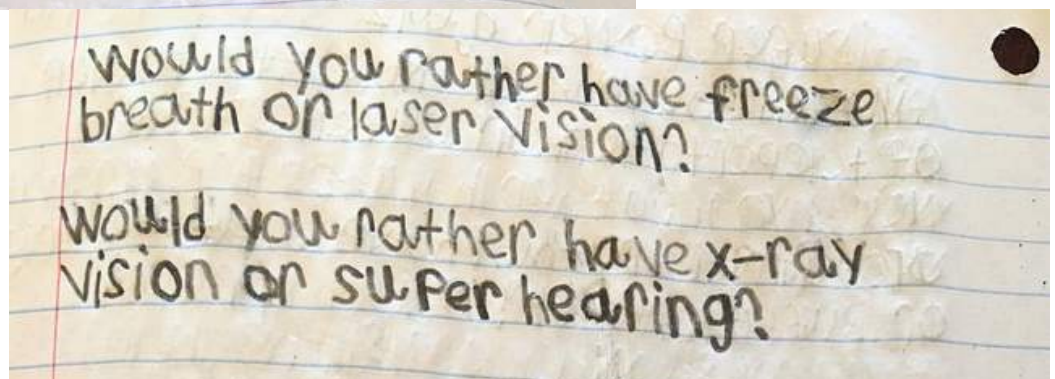 would you rather have freeze
breath or laser vision?
would you rather have x-ray
vision or super hearing?